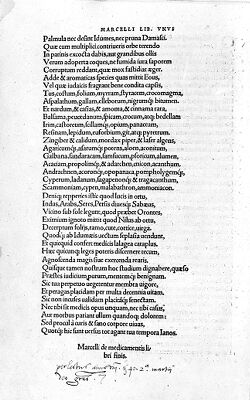 MARCELLI LIB. VNVS
Palmula nec desint Idumes, nec pruna Damasci.
Quæ cum multiplici contriueris orbe terendo
In patinis excocta dabis, aut grandibus ollis
Verum adoperta coques, ne fumida iura saporem
Corruptum reddant, quæ mox fastidiat æger.
Adde & aromaticas species quas mittit Eous,
Vel quæ iudaicis fragrant bene condita capsis,
Tus, costum, folium, myrram, styracem, crocomagma,
Aspalathum, gallam, elleborum, nigrumq; bitumen.
Et nardum, & casias, & amoma, & cinnama rara,
Balsama, peucedanum, spicam, crocum, atq; bedellam
Irim, castoreum, scillamq;, opium, panacem,
Resinam, lepidum, euforbium, git, atq; pyretrum.
Zingiber & calidum mordax piper, & laser algens,
Agaricumq;, asarumq;, aloen, alum, aconitum,
Galbana, sandaracam, samsucum, psoricum, alumen,
Acaciam, propolimq;, & adarchen, mision, acanthum.
Andrachnen, acoronq;, opopanaca, pompholygemq;,
Cyperum, ladanum, sagapenonq; & tragacanthum,
Scammoniam, cypen, malabathron, ammoniacon.
Deniq; repperies istic quod lucis in ortu,
Indus, Arabs, Seres, Persis diuesq; Sabæus,
Vicino sub sole legunt, quod præbet Orontes,
Eximium ignoto mittit quod Nilus ab ortu,
Decerptum foliis, ramo, rute, cortice, uirga.
Quodq; ab Idumæis uectum seplasia uendunt,
Et quicquid confert medicis lalagea cataplus.
Hæc quicunq; leges poteris discernere tecum,
Agnoscenda magis siue extemenda rearis.
Quisque tamen nostrum hoc studium dignabere, quæso
Præstes iudicium purum, mentemq; benignam.
Sic tua perpetuo uegetentur membra uigore,
Et peragas placidam per multa decennia uitam.
Sic non incuses ualidam placidáq; senectam.
Nec tibi sit medicis opus unquam, nec tibi casus,
Aut morbus pariant ullum quandoq; dolorem
Sed procul à curis & sano corpore uiuas,
Quotq; hic sunt uersus tot agant tua tempora Ianos.
Marcelli de medicamentis li
bri finis.